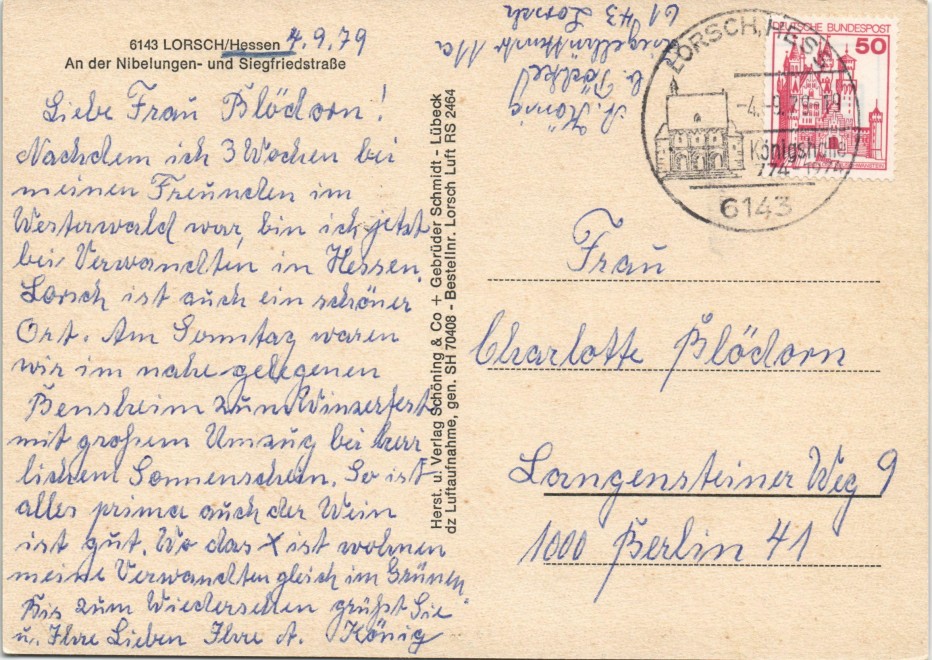 6143 LORSCH/Hessen 4.9.79
An der Nibelungen- und Siegfriedstraße
Liebe Frau Blödorn!
Nachdem ich 3 Wochen bei
meinen Freunden im
Westerwald war, bin ich jetzt
bei Verwandten in Hessen.
Lorsch ist auch ein schöner
Ort. Am Sonntag waren
wir im nahe gelegenen
Bensheim zum Winzerfest
mit großem Umzug bei herr
lichem Sonnenschein. So ist
alles prima auch der Wein
ist gut. Wo das X ist wohnen
meine Verwandten gleich im Grünen.
Bis zum Wiedersehen grüßt Sie
u. Ihre Lieben Ihre A. König
Herst. u. Verlag Schöning & Co + Gebrüder Schmidt - Lübeck
dz Luftaufnahme, gen. SH 70408 - Bestellnr. Lorsch Luft RS 2464
A. König
11a
6143 Lorsch
LORSCH, HESS
-4.-9.79-19
Königshalle
774-1974
6143
DEUTSCHE BUNDESPOST
50
Frau
Charlotte Blödorn
Langensteiner Weg 9
1000 Berlin 41